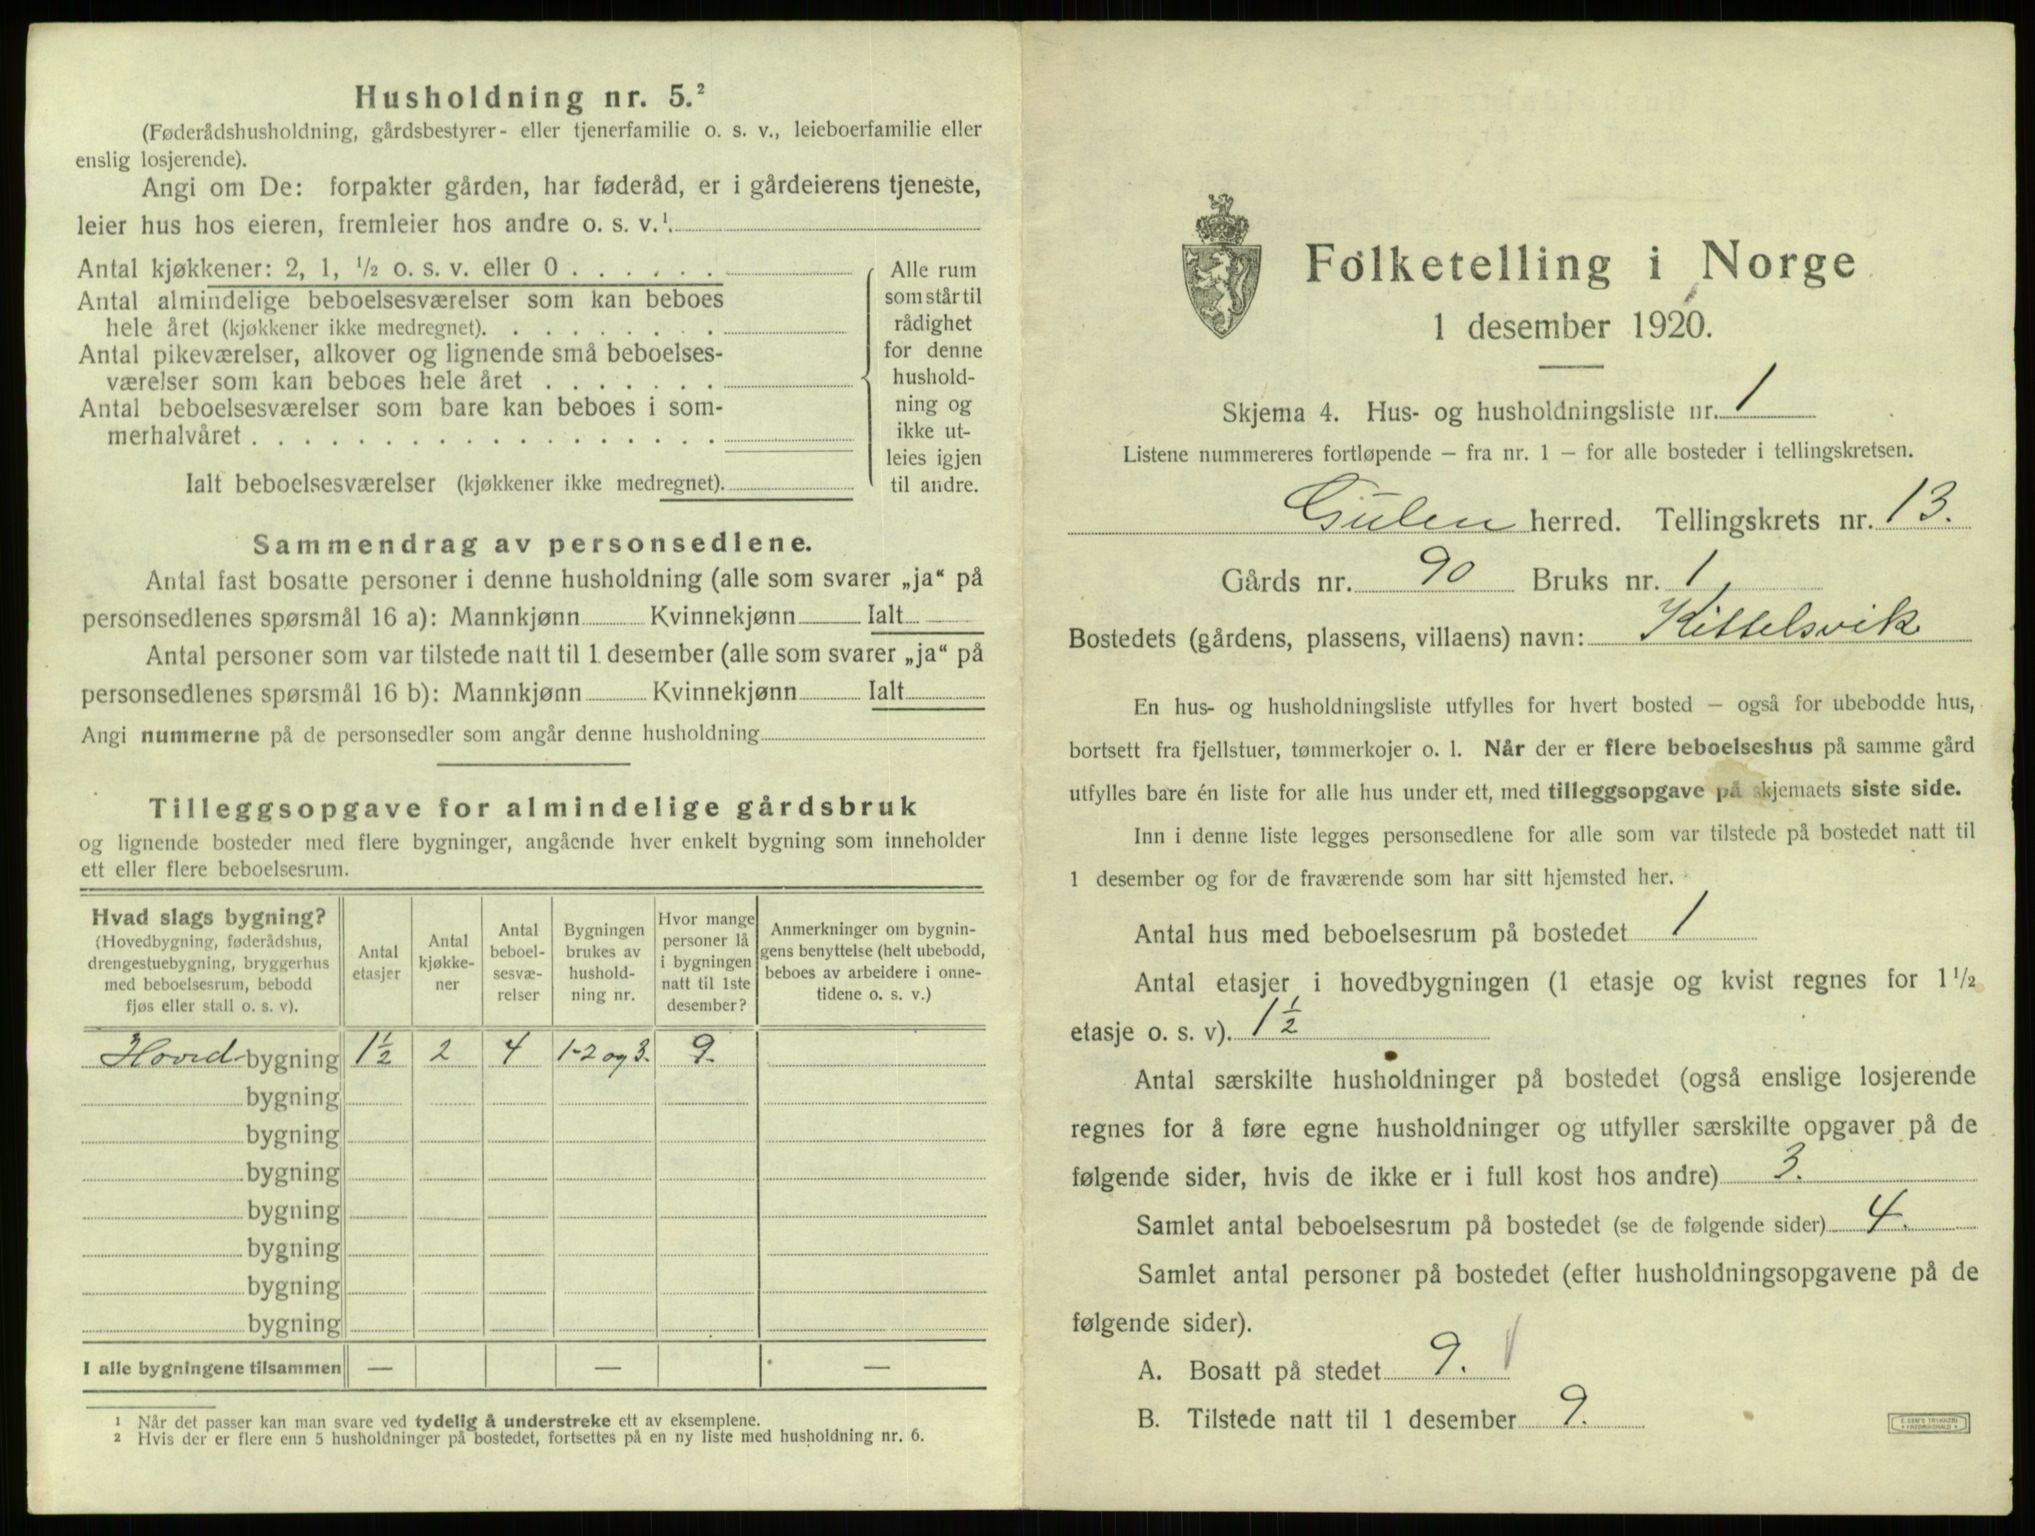 Husholdning nr. 5.²
(Føderådshusholdning, gårdsbestyrer- eller tjenerfamilie o. s. v., leieboerfamilie eller
enslig losjerende).
Angi om De: forpakter gården, har føderåd, er i gårdeierens tjeneste,
leier hus hos eieren, fremleier hos andre o. s. v.¹.
Antal kjøkkener: 2, 1, ½ o. s. v. eller 0 . . . . . .
Antal almindelige beboelsesværelser som kan beboes
hele året (kjøkkener ikke medregnet). . . . . . . . .
Antal pikeværelser, alkover og lignende små beboelses-
værelser som kan beboes hele året . . . . . . .
Antal beboelsesværelser som bare kan beboes i som-
merhalvåret . . . . . . . . . . . . . . . . . .
Ialt beboelsesværelser (kjøkkener ikke medregnet).
Alle rum
som står til
rådighet
for denne
hushold-
ning og
ikke ut-
leies igjen
til andre.
Sammendrag av personsedlene.
Antal fast bosatte personer i denne husholdning (alle som svarer „ja“ på
personsedlenes spørsmål 16 a): Mannkjønn Kvinnekjønn Ialt
Antal personer som var tilstede natt til 1. desember (alle som svarer „ja“ på
personsedlenes spørsmål 16 b): Mannkjønn Kvinnekjønn Ialt
Angi nummerne på de personsedler som angår denne husholdning
Tilleggsopgave for almindelige gårdsbruk
og lignende bosteder med flere bygninger, angående hver enkelt bygning som inneholder
ett eller flere beboelsesrum.
Hvad slags bygning?
(Hovedbygning, føderådshus,
drengestuebygning, bryggerhus
med beboelsesrum, bebodd
fjøs eller stall o. s. v).
Antal
etasjer
Antal
kjøkke-
ner
Antal
beboel-
sesvæ-
relser
Bygningen
brukes av
hushold-
ning nr.
Hvor mange
personer lå
i bygningen
natt til 1ste
desember?
Anmerkninger om bygnin-
gens benyttelse (helt ubebodd,
beboes av arbeidere i onne-
tidene o. s. v.)
Hovedbygning 1½ 2 4 1-2 og 3. 9.
bygning
bygning
bygning
bygning
bygning
bygning
bygning
I alle bygningene tilsammen — — —
¹ Når det passer kan man svare ved tydelig å understreke ett av eksemplene.
² Hvis der er flere enn 5 husholdninger på bostedet, fortsettes på en ny liste med husholdning nr. 6.
Folketelling i Norge
1 desember 1920.
Skjema 4. Hus- og husholdningsliste nr. 1
Listene nummereres fortløpende — fra nr. 1 — for alle bosteder i tellingskretsen.
Gulen herred. Tellingskrets nr. 13.
Gårds nr. 90 Bruks nr. 1,
Bostedets (gårdens, plassens, villaens) navn: Kittelsvik
En hus- og husholdningsliste utfylles for hvert bosted — også for ubebodde hus,
bortsett fra fjellstuer, tømmerkojer o. l. Når der er flere beboelseshus på samme gård
utfylles bare én liste for alle hus under ett, med tilleggsopgave på skjemaets siste side.
Inn i denne liste legges personsedlene for alle som var tilstede på bostedet natt til
1 desember og for de fraværende som har sitt hjemsted her.
Antal hus med beboelsesrum på bostedet 1
Antal etasjer i hovedbygningen (1 etasje og kvist regnes for 1½
etasje o. s. v). 1½
Antal særskilte husholdninger på bostedet (også enslige losjerende
regnes for å føre egne husholdninger og utfyller særskilte opgaver på de
følgende sider, hvis de ikke er i full kost hos andre) 3.
Samlet antal beboelsesrum på bostedet (se de følgende sider) 4.
Samlet antal personer på bostedet (efter husholdningsopgavene på de
følgende sider).
A. Bosatt på stedet 9.
B. Tilstede natt til 1 desember 9.